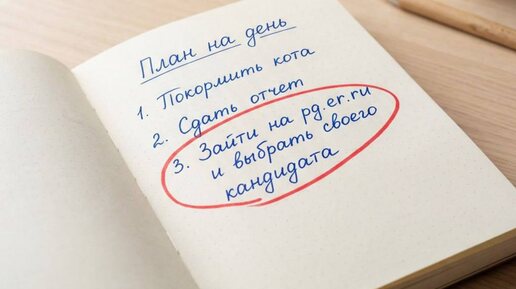 План на день
1. Покормить кота
2. Сдать отчет
3. Зайти на pg.er.ru
и выбрать своего
кандидата